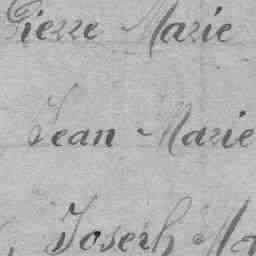 Pierre Marie
Jean Marie
Joseph